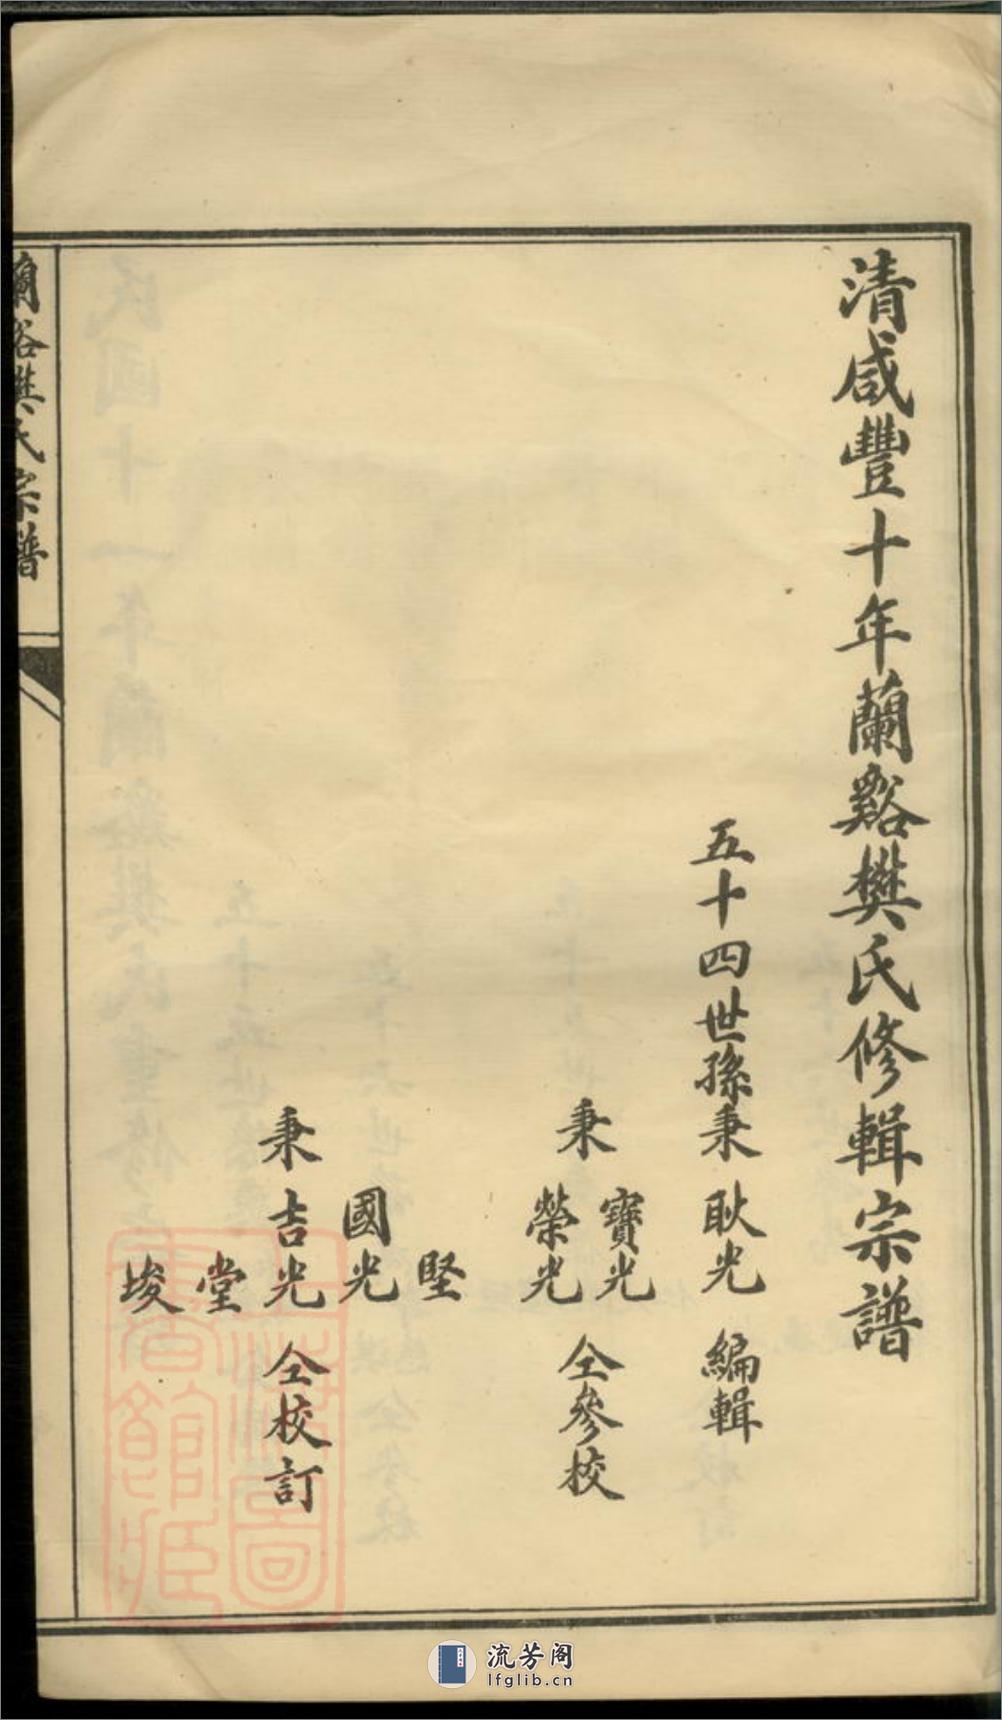 清咸豐十年蘭谿樊氏修輯宗譜
五十四世孫秉耿光 編輯
秉
寶光
榮光
仝參校
堅
國光
秉吉光
堂
埈
仝校訂
蘭谿樊氏宗譜
流芳阁
lfglib.cn